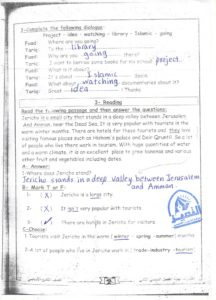 3-Complete the following dialogue:
Project - idea - watching - library - Islamic - going
Fuad: Where are you going?
Tariq: To the library
Fuad: Why are you going there?
Tariq: I want to borrow some books for my school project.
Fuad: What is it about?
Tariq: It's about Islamic
Fuad: What about watching documentaries about it?
Tariq: Great idea! Thanks
3- Reading
Read the following passage and then answer the questions:
Jericho is a small city that stands in a deep valley between Jerusalem
and Amman, near the Dead Sea. It is very popular with tourists in the
warm winter months. There are hotels for these tourists and they love
visiting famous places such as Hisham's palace and Deir Quruntl. Six
of people who live there work in tourism. With huge quantities of water
and warm climate, it is an excellent place to grow bananas and various
other fruit and vegetables including dates.
A- Answer:
1-Where does Jericho stand?
Jericho stands in a deep valley between Jerusalem
and Amman
B: Mark T or F:
1- (X) Jericho is a large city.
2- (X) It very popular with tourists
3- (✓) There are hotels in Jericho for visitors
C-Choose:
1-Tourists visit Jericho in the warm (winter - spring - summer) months
2-A lot of people who live in Jericho work in (trade-industry - tourism)